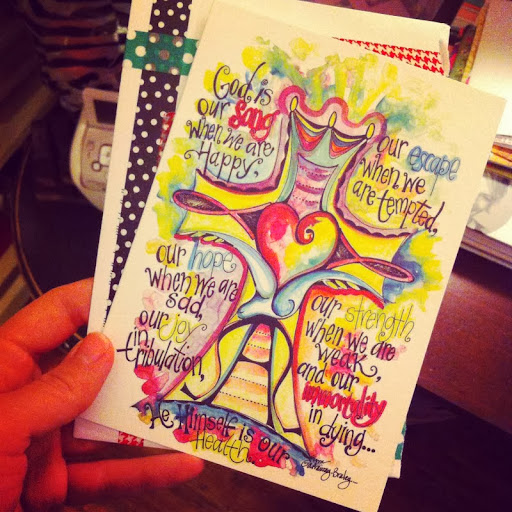 God is
our song
when we are
Happy,
our escape
when we
are tempted,
our hope
when we are
sad,
our joy
in
tribulation,
our strength
when we are
weak,
and our
immortylity
in dying...
He Himself is our
Health.